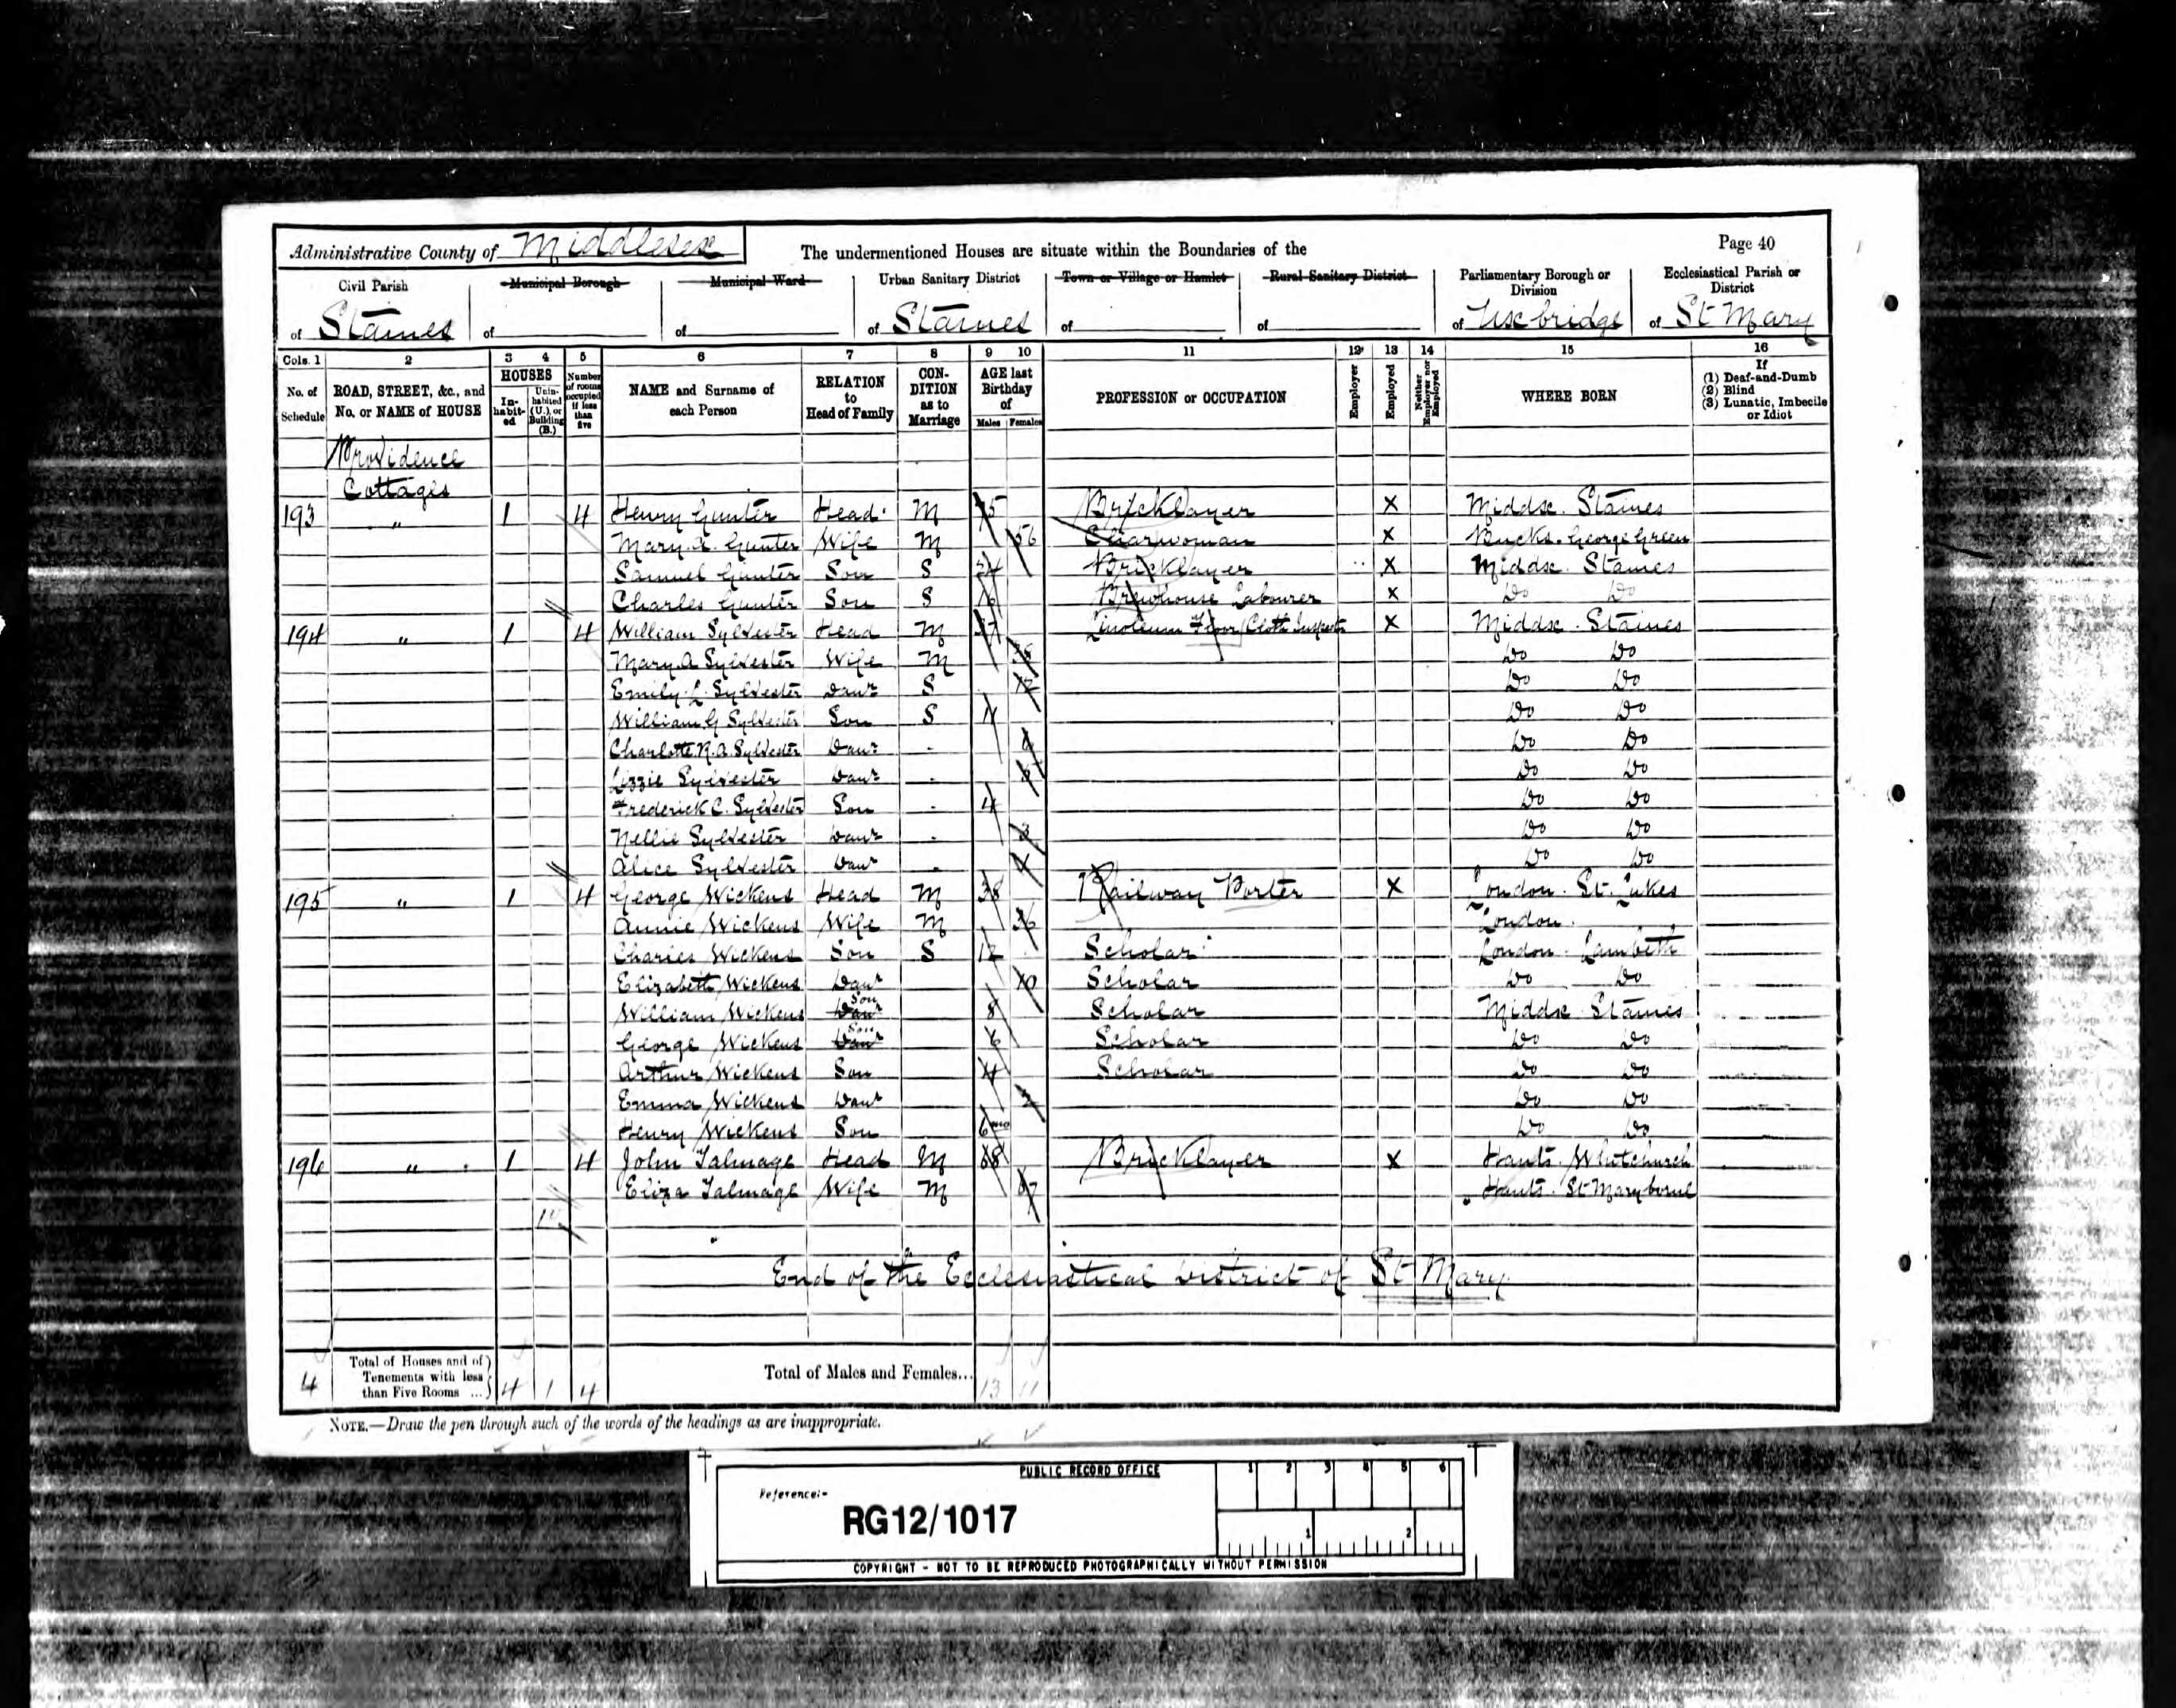 Administrative County of Middlesex The undermentioned Houses are situate within the Boundaries of the Page 40
Civil Parish Municipal Borough Municipal Ward Urban Sanitary District Town or Village or Hamlet Rural Sanitary District Parliamentary Borough or Division Ecclesiastical Parish or District
of Staines of of of Staines of of of Uxbridge of St Mary
Cols. 1 2 3 4 5 6 7 8 9 10 11 12 13 14 15 16
No. of Schedule ROAD, STREET, &c., and No. or NAME of HOUSE HOUSES In-habit-ed Unin-habited (U.), or Building (B.) Number of rooms occupied if less than five NAME and Surname of each Person RELATION to Head of Family CON-DITION as to Marriage AGE last Birthday of Males Females PROFESSION or OCCUPATION Employer Employed Neither Employer nor Employed WHERE BORN If (1) Deaf-and-Dumb (2) Blind (3) Lunatic, Imbecile or Idiot
Providence
Cottages
193 " 1 4 Henry Gunter Head M Bricklayer X Middsx. Staines
Mary A. Gunter Wife M 56 Charwoman X Bucks. George Green
Samuel Gunter Son S 24 Bricklayer X Middsx. Staines
Charles Gunter Son S Brewhouse Labourer X Do Do
194 " 1 4 William Sylvester Head M 37 Linoleum Floor Cloth Inspector X Middsx. Staines
Mary A Sylvester Wife M 38 Do Do
Emily L. Sylvester Daur S 12 Do Do
William G Sylvester Son S 11 Do Do
Charlotte R. A. Sylvester Daur - Do Do
Lizzie Sylvester Daur - 6 Do Do
Frederick C. Sylvester Son - 4 Do Do
Nellie Sylvester Daur - 3 Do Do
Alice Sylvester Daur - 1 Do Do
195 " 1 4 George Wickens Head M 38 Railway Porter X London. St. Lukes
Annie Wickens Wife M 36 London.
Charles Wickens Son S 12 Scholar London. Lambeth
Elizabeth Wickens Daur 10 Scholar Do Do
William Wickens Daur Son 8 Scholar Middsx Staines
George Wickens Daur Son 6 Scholar Do Do
Arthur Wickens Son 4 Scholar Do Do
Emma Wickens Daur 2 Do Do
Henry Wickens Son 6mo Do Do
196 " 1 4 John Talmage Head M 68 Bricklayer X Hants. Whitchurch
Eliza Talmage Wife M 67 Hants. St Maryborne
End of the Ecclesiastical District of St Mary
4 Total of Houses and of Tenements with less than Five Rooms ... 4 1 4 Total of Males and Females... 13 11
NOTE.—Draw the pen through such of the words of the headings as are inappropriate.
PUBLIC RECORD OFFICE 1 2 3 4 5 6
Reference:-
RG12/1017 1 2
COPYRIGHT - NOT TO BE REPRODUCED PHOTOGRAPHICALLY WITHOUT PERMISSION